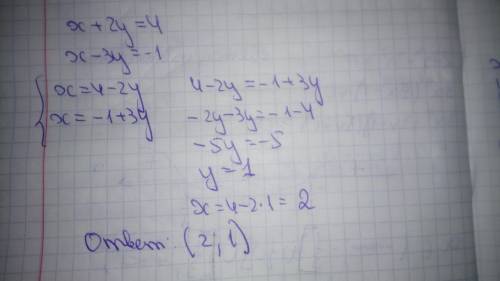 x + 2y = 4
x - 3y = -1
x = 4 - 2y
x = -1 + 3y
4 - 2y = -1 + 3y
-2y - 3y = -1 - 4
-5y = -5
y = 1
x = 4 - 2·1 = 2
Ответ: (2; 1)